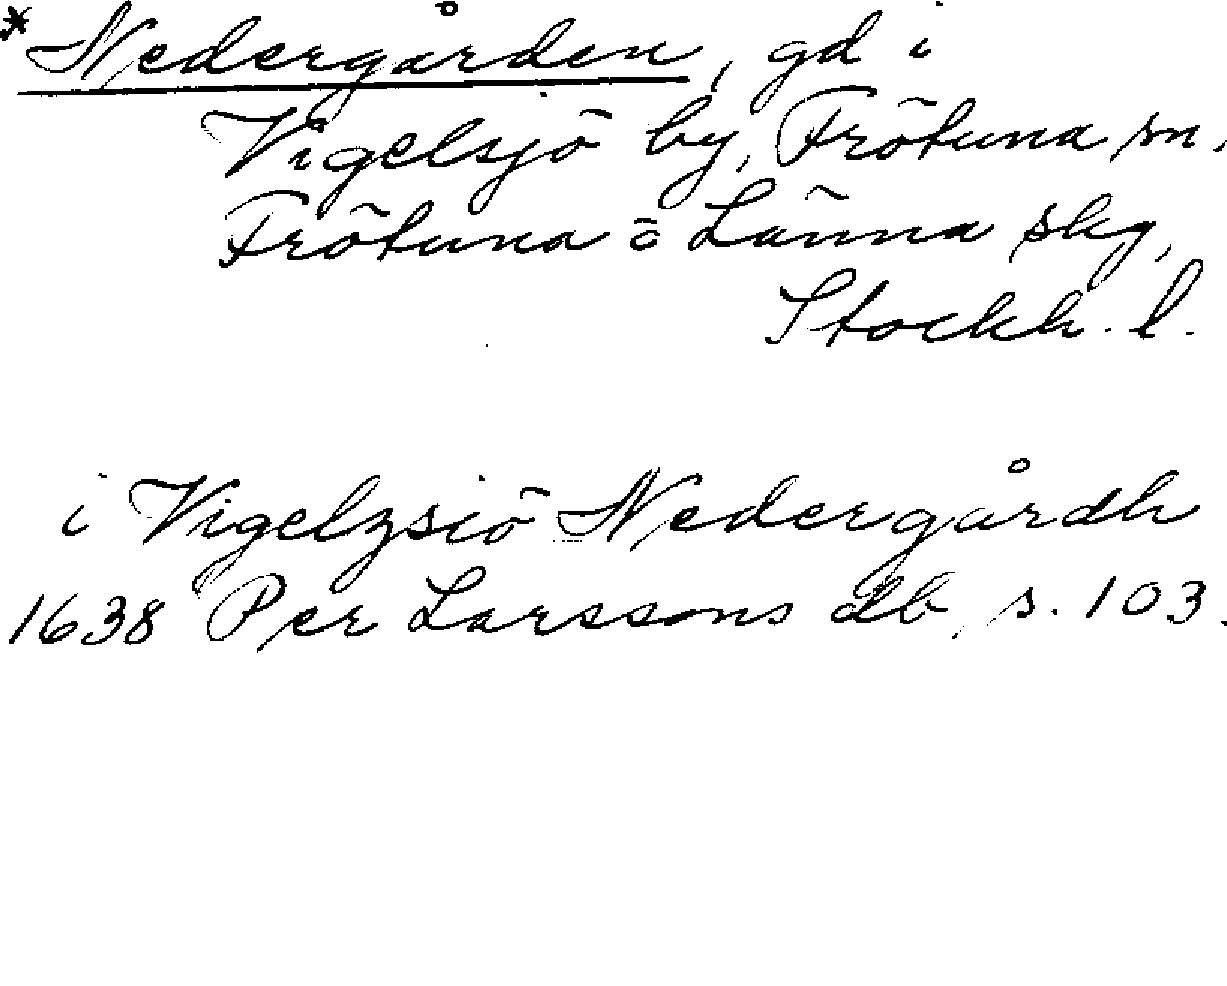 *Nedergården, gd i
Vigelsjö by, Frötuna sn,
Frötuna o Länna skg,
Stockh. l.
i Vigelzsiö Nedergårdh
1638 Per Larssons db, s. 103.